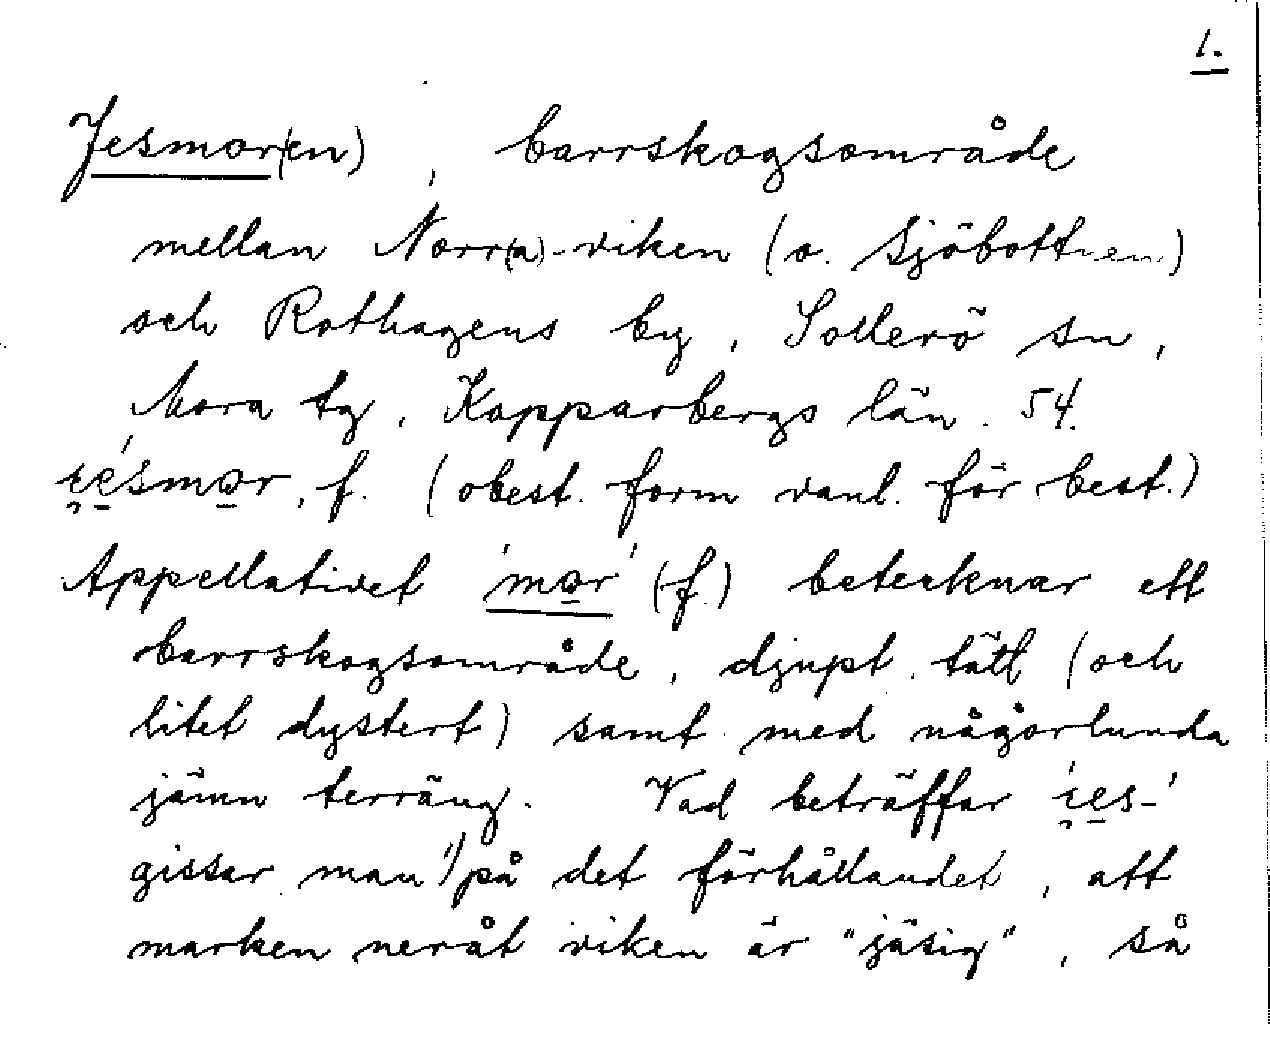 1.
Jesmor(en), barrskogsområde
mellan Norr(a)-viken (o. Sjöbottnen)
och Rothagens by, Sollerö sn,
Mora tg, Kopparbergs län. 54.
i̯e̠'smo̠r, f. (obest. form vanl. för best.)
Appellativet 'mo̠r' (f.) betecknar ett
barrskogsområde, djupt, tätt (och
litet dystert) samt med någorlunda
jämn terräng. Vad beträffar 'i̯e̠s-'
gissar man 1) på det förhållandet, att
marken neråt viken är "jäsig", så